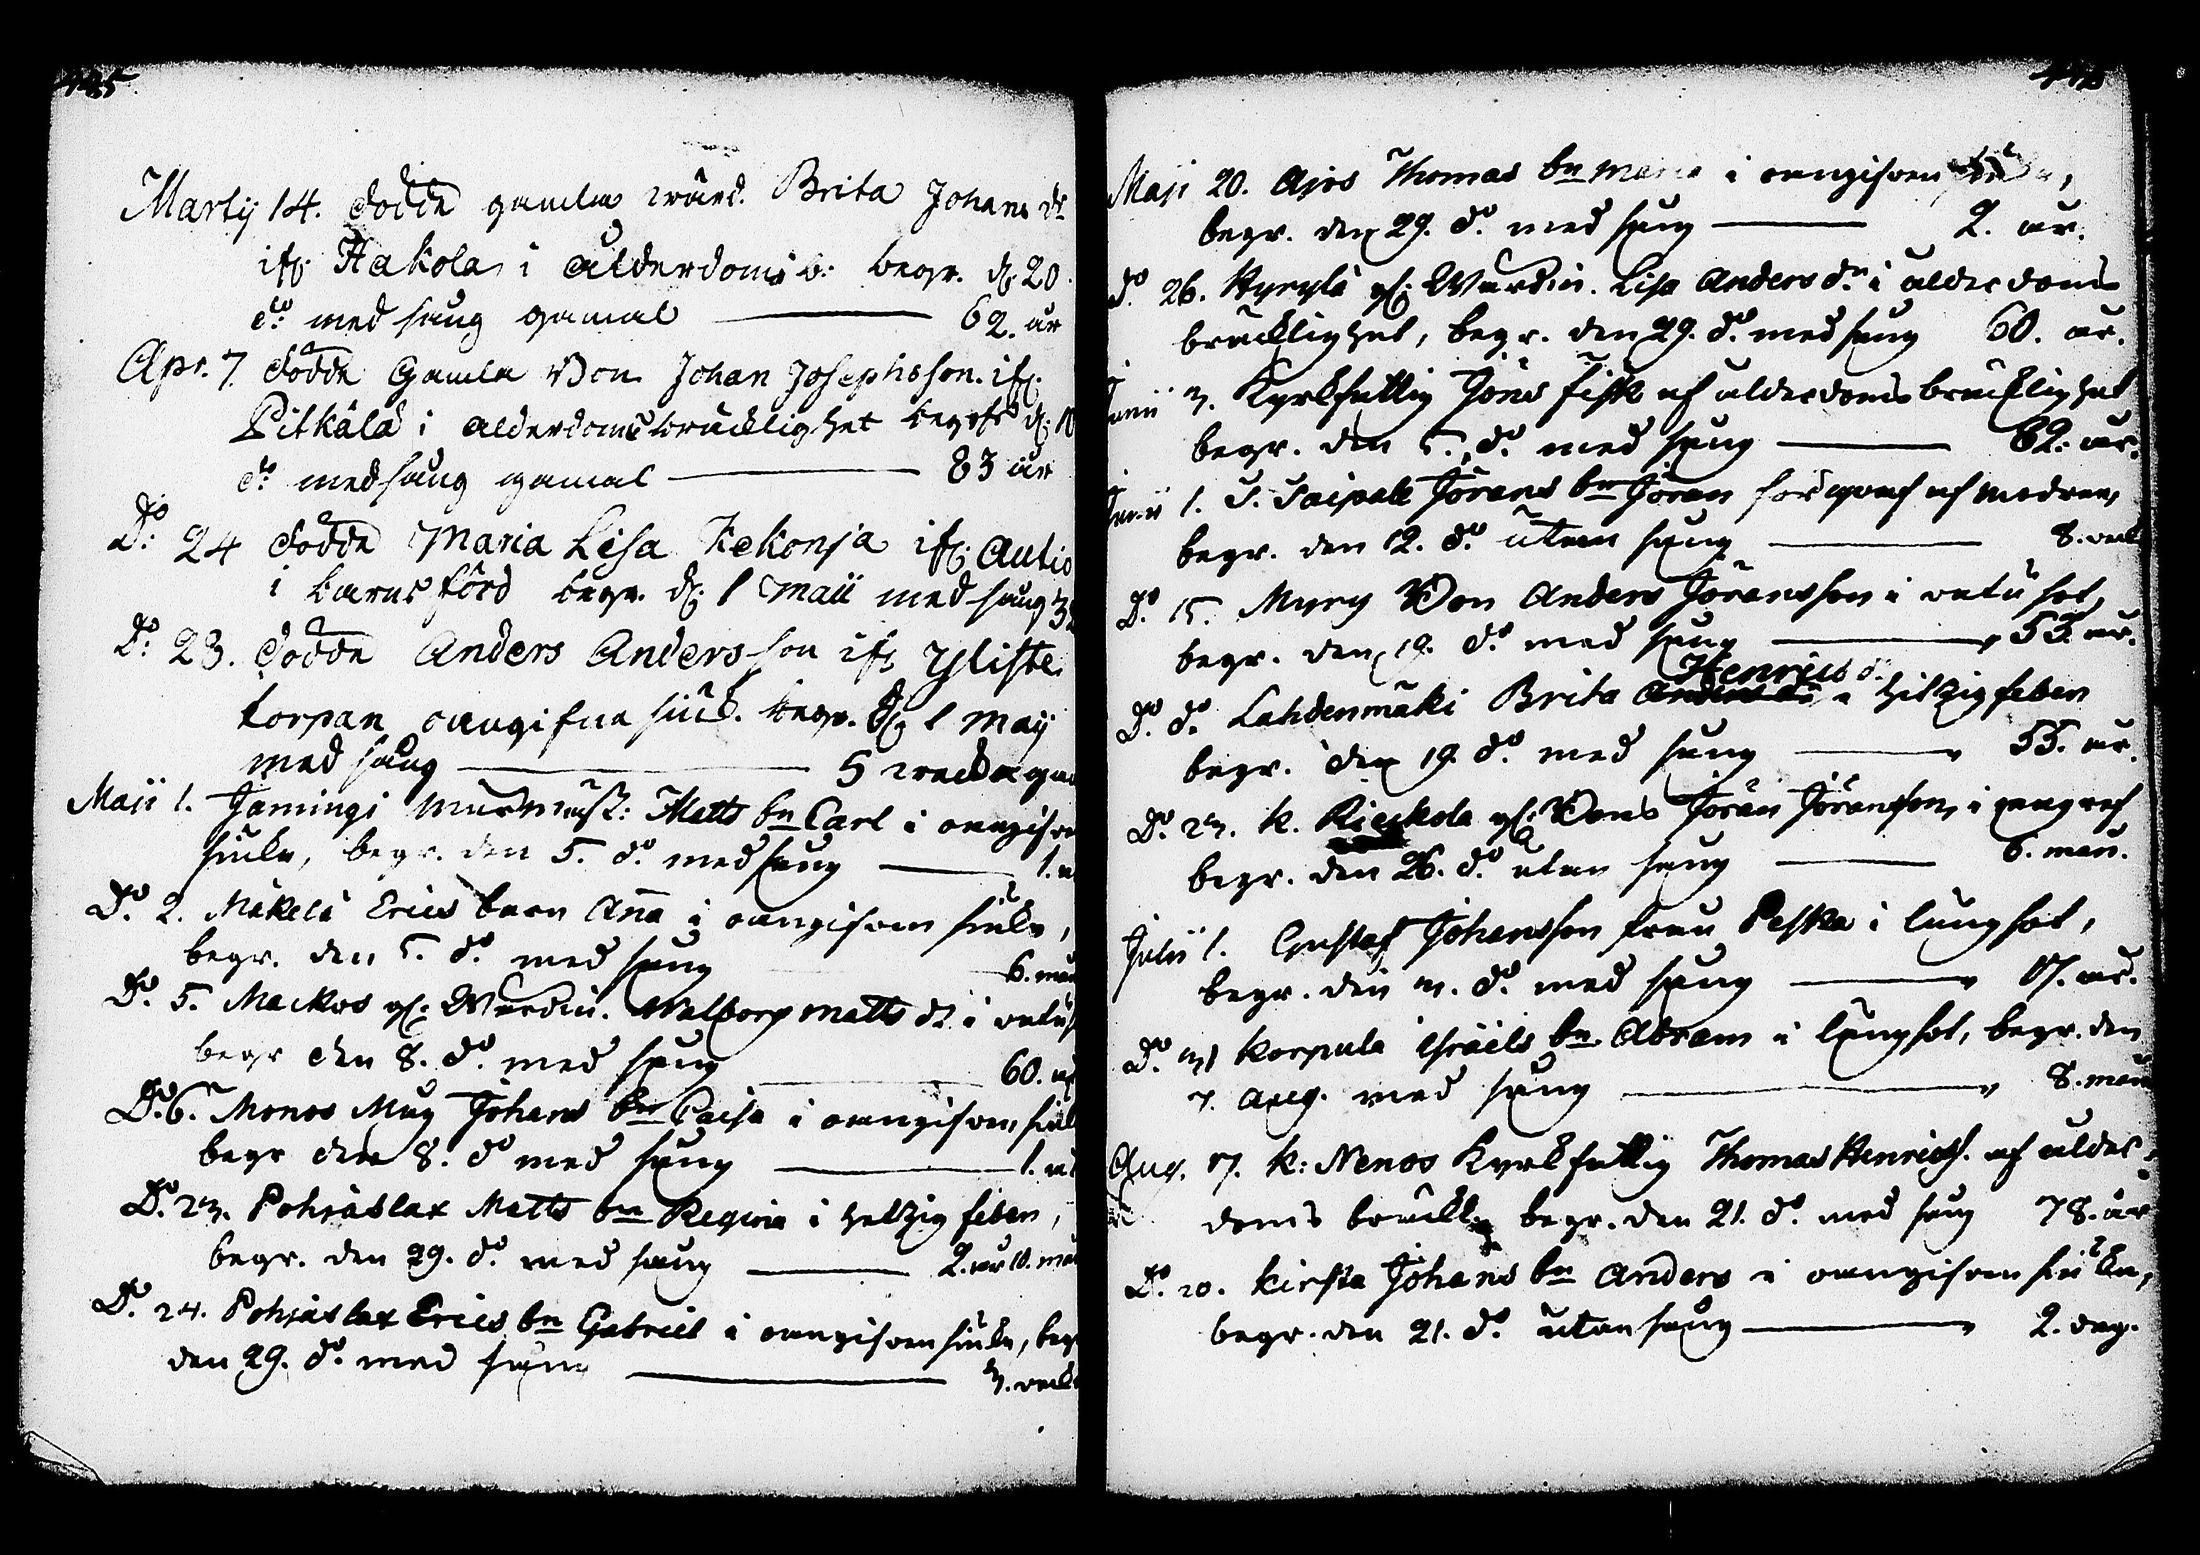 Martij 14. dödde gamla wärd. Brita Johans dr
ifr: Hakola i ålderdoms b: begr. d: 20
do: med sång gamal 62. år
Apr. 7. dödde Gamla Bon. Johan Josephsson. ifr:
Pitkälä i alderdoms bräcklighet begrofs d: 10
do: med sång gamal 83 år
Do: 24 dödde Maria Lisa Kekonja ifr: Autio
i barns börd begr. d: 1 Maii med sång
Do: 23. dödde Anders Andersson ifr Yliste
torpan oangifna siuk. begr. d: 1 Maij
med sång 5 wecko gam
Maii 1. Jamingi Matts bn Carl i oangifven
siuka, begr. den 5. do. med sång 1.
Do. 2. Mäkelä Erics barn Anna i oangifven siuka,
begr. den 5. do. med sång 6. mån
Do. 5. Mackos gl: Wärdin. Walborg Matts dr. i
begr den 8. do. med sång 60.
Do. 6. Monos Måg Johans bn Caisa i oangifven siuk
begr den 8. do med sång 1.
Do. 23. Pohjaslax Matts bn Regina i hetzig feber,
begr. den 29. do. med sång 2. år 10. mån
Do. 24. Pohjaslax Erics bn Gabriel i oangifven siuka, begr
den 29. do. med sång 3. weck
Maji 20. Ajos Thomas bn Maria i oangifven siuka,
begr. den 29. do. med sång 2. år.
do. 26. Hyrylä gl: Wärdin. Lisa Anders dr i ålderdoms
bräcklighet, begr. den 29. do. med sång 60. år.
Junii 3. Kyrkfattig Jöns Fisk af ålderdoms bräcklighet
begr. den 5. do. med sång 82. år.
Junii 1. S. Saipale Jörans bn Jöran af modren,
begr. den 12. do. utan sång 8. veck
Do. 15. Myry Bon Anders Jöransson i
begr. den 19. do. med sång 53. år.
Henrics d:
Do. do. Lahdenmäki Brita i hitzig feber
begr. den 19. do. med sång 55. år.
Do. 23. K. Rieckola gl: Bons Jöran Jöransson, i
begr. den 26. do. utan sång 6. mån.
Julii 1. Gustaf Johansson från Peska i lungsot,
begr. den 3. do. med sång 17. år.
Do. 31 Korpula Israels bn Abram i lungsot, begr. den
7. Aug. med sång 8. mån
Aug. 17. K: Nenos Kyrkfattig Thomas Henrichs. af ålder
doms bräckl. begr. den 21. do. med sång 78. år
Do. 20. Kiesta Johans bn Anders i oangifven siuka,
begr. den 21. do. utan sång 2. dag.